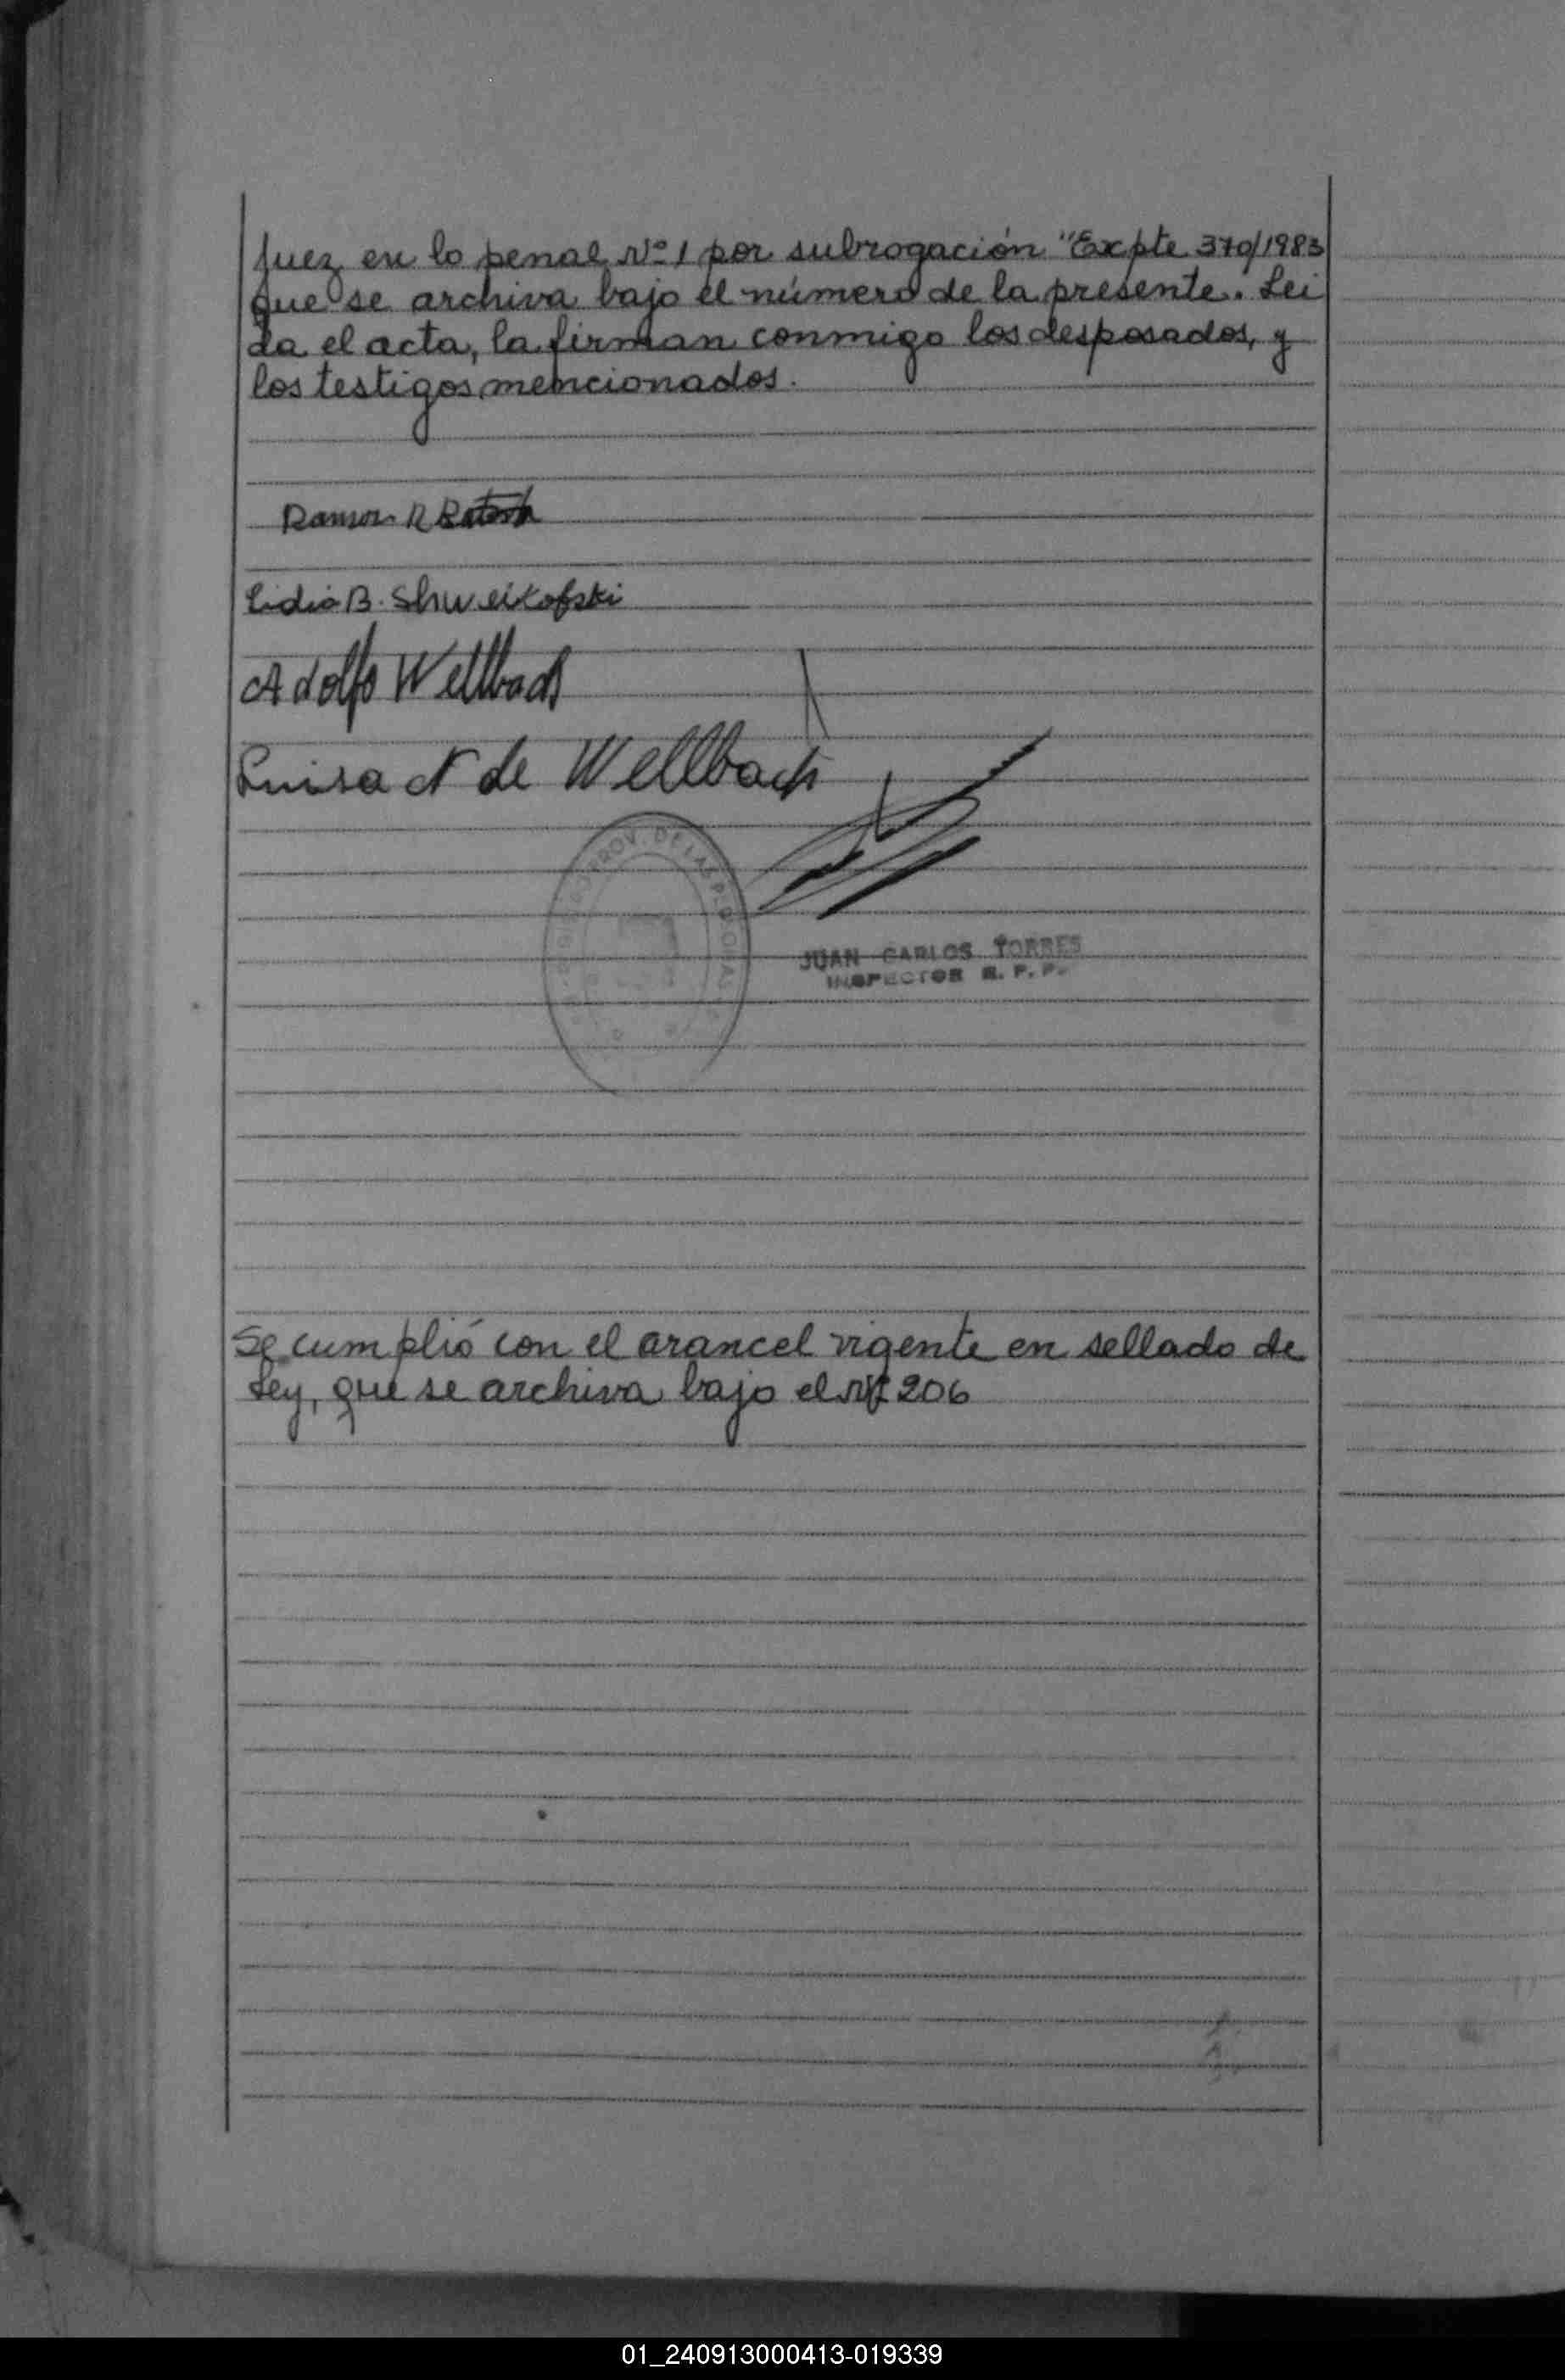 Juez en lo penal Nº 1 por subrogación "Expte 370/1983
que se archiva bajo el número de la presente. Lei
da el acta, la firman conmigo los desposados, y
los testigos mencionados.
Ramon R
Lidia B. Shweikofski
Adolfo Wellbach
Luisa N de Wellbach
PROV. DE LAS
JUAN CARLOS TORRES
INSPECTOR R. P. P.
Se cumplió con el arancel vigente en sellado de
Ley, que se archiva bajo el Nº 206
01_240913000413-019339